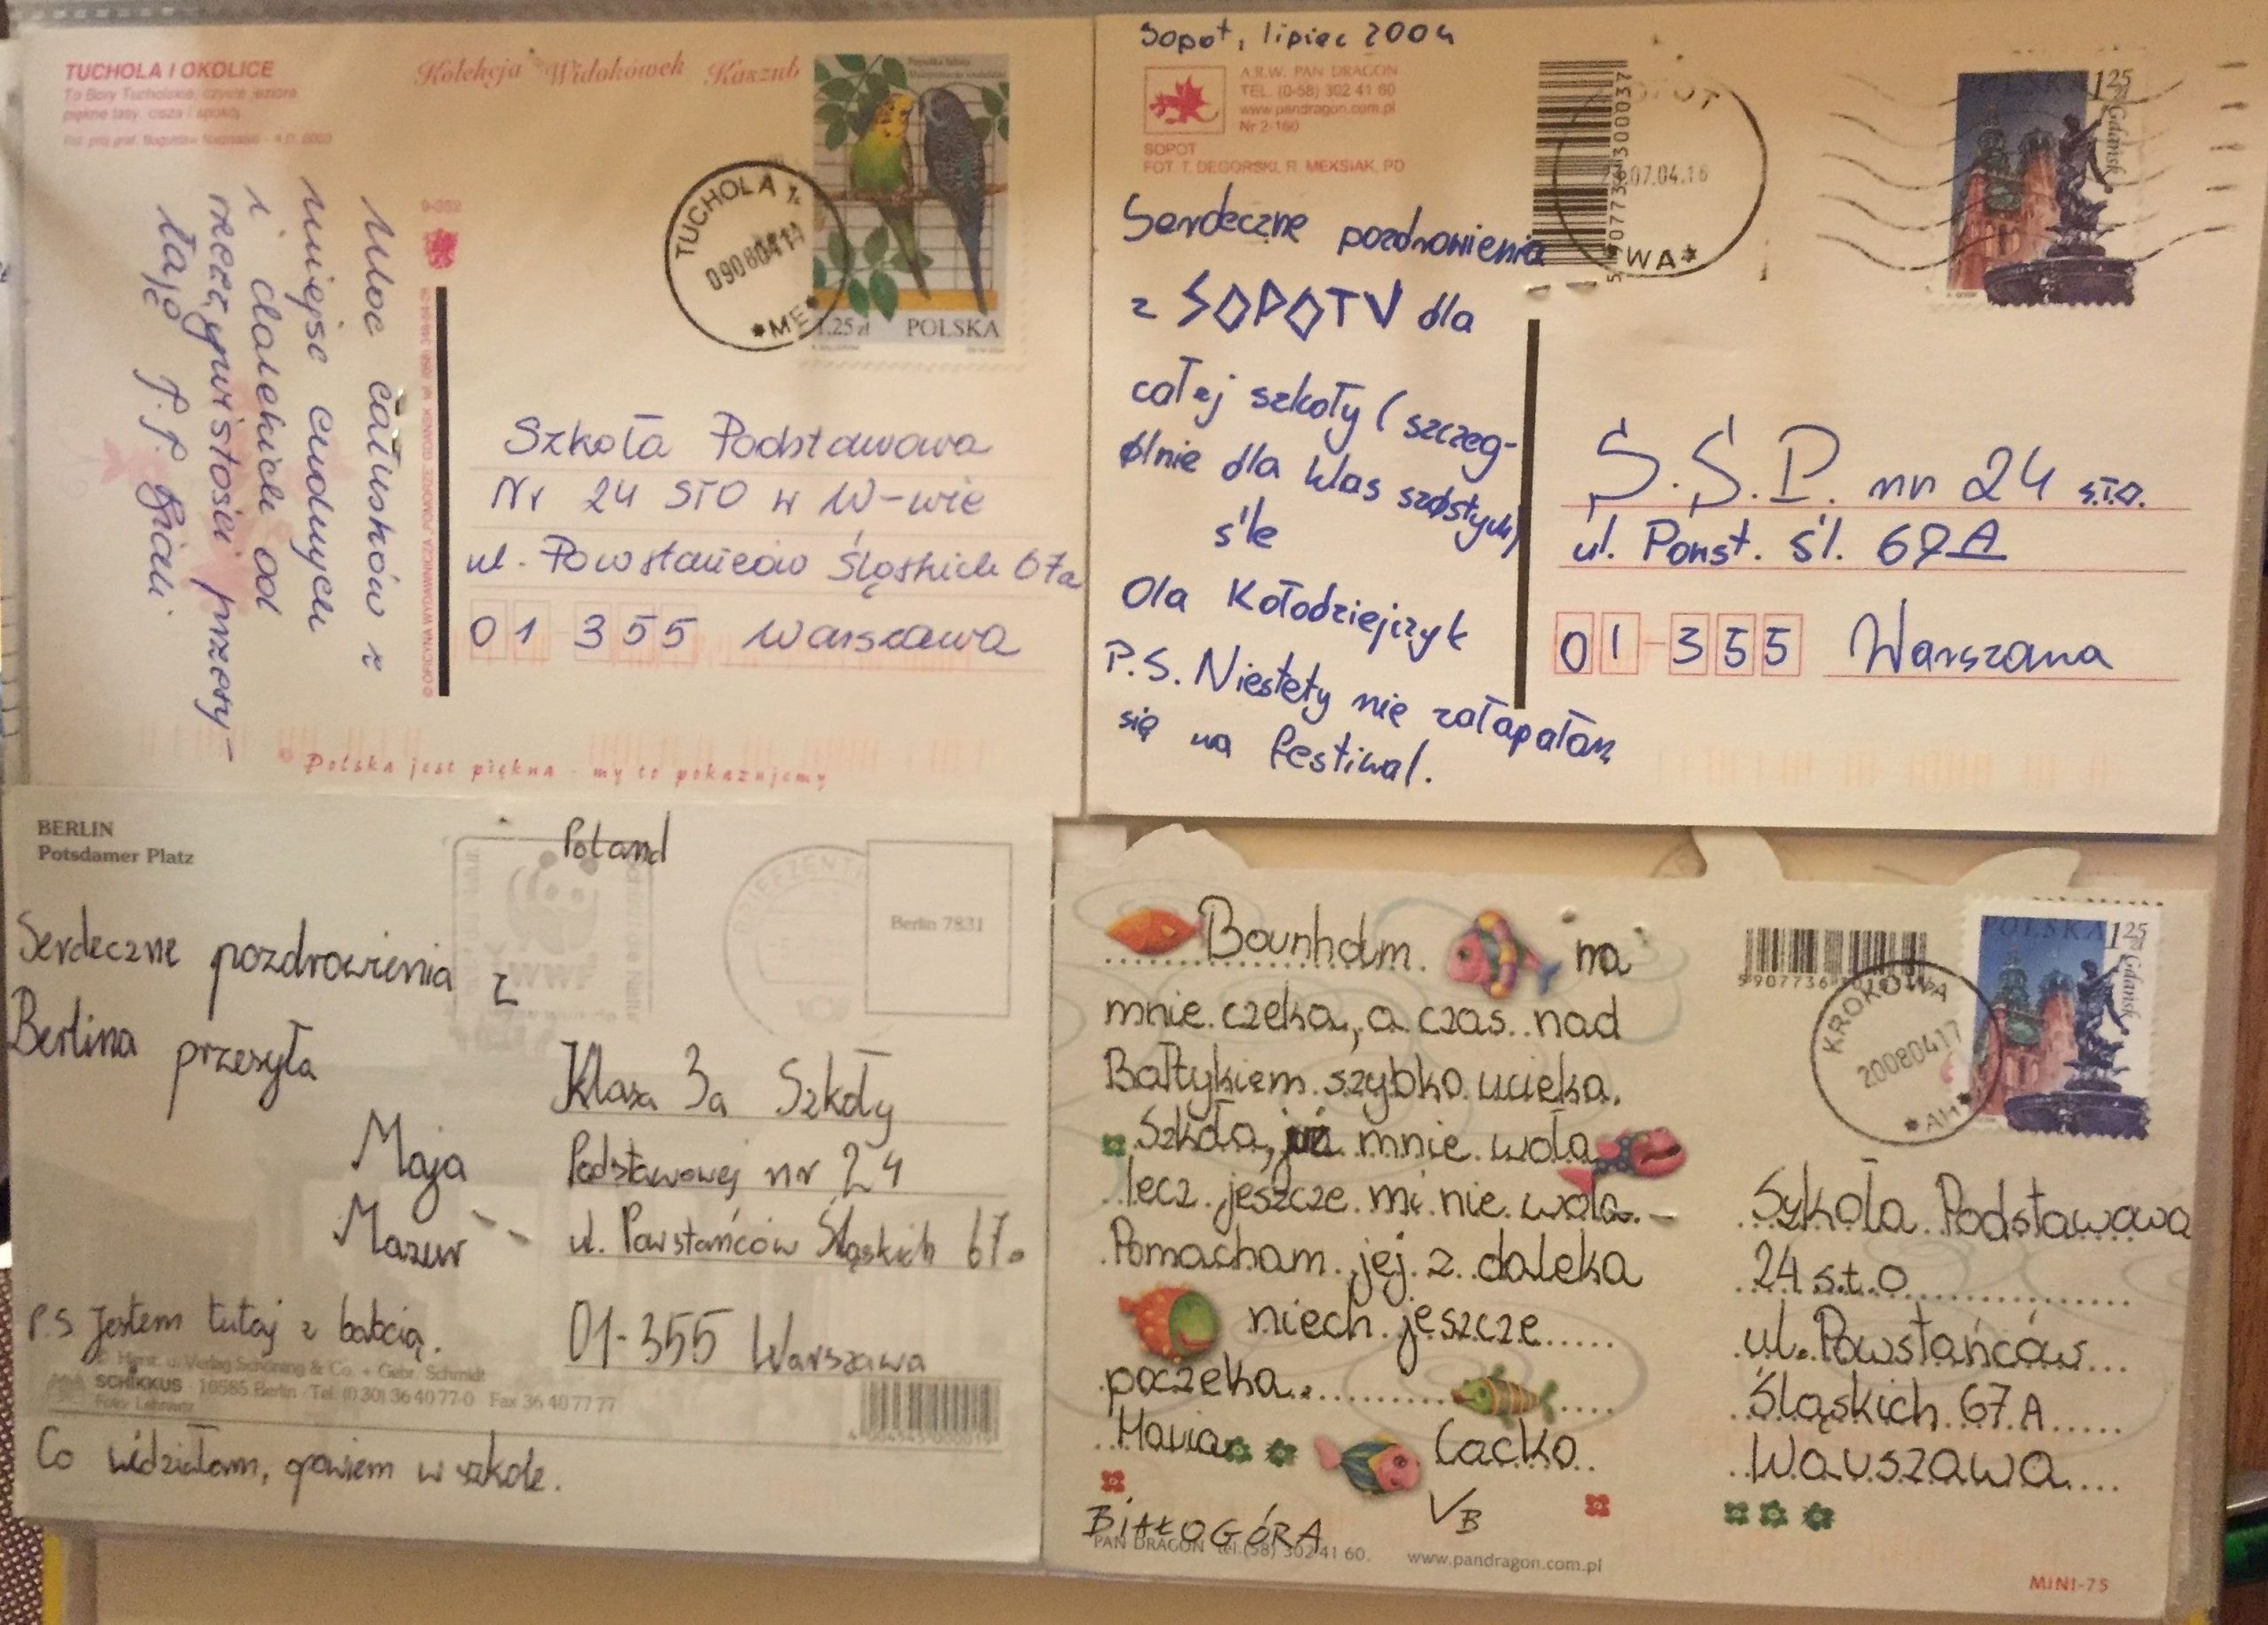 TUCHOLA I OKOLICE
To Bory Tucholskie, czyste jeziora
piękne lasy, cisza i spokój.
Kolekcja Widokówek Kaszub
TUCHOLA 1
090804 14
*ME*
1.25 zł POLSKA
Moc całusków z
miejsc cudnych
i dalekich od
rzeczywistości przesy-
łają P.P.
9-092
Szkoła Podstawowa
Nr 24 STO w W-wie
ul. Powstańców Śląskich 67a
01 355 Warszawa
© Polska jest piękna - my to pokazujemy
Sopot, lipiec 2004
A.R.W. PAN DRAGON
TEL. (0-58) 302 41 60
www.pandragon.com.pl
Nr 2-160
SOPOT
FOT. T. DEGÓRSKI, R. MEKSIAK, PD
07.04.16
*WA*
POLSKA 1 25 zł
Gdańsk
Serdeczne pozdrowienia
z SOPOTU dla
całej szkoły (szczeg-
ólnie dla klas szóstych)
śle
Ola Kołodziejczyk
P.S. Niestety nie załapałam
się na festiwal.
S.S.P. nr 24 s.t.o.
ul. Powst. Śl. 67A
01-355 Warszawa
BERLIN
Potsdamer Platz
Poland
WWF
BRIEFZENTR
Berlin 7831
Serdeczne pozdrowienia z
Berlina przesyła
Maja
Mazur
P.S Jestem tutaj z babcią.
Klasa 3a Szkoły
Podstawowej nr 24
ul. Powstańców Śląskich 67a
01-355 Warszawa
Verlag Schöning & Co. + Gebr. Schmidt
SCHIKKUS · 10585 Berlin · Tel. (030) 36 40 77-0 Fax 36 40 77 77
Co widziałam, opowiem w szkole.
Bornholm na
mnie czeka, a czas nad
Bałtykiem szybko ucieka.
Szkoła już mnie woła
lecz jeszcze mi nie woła.
Pomacham jej z daleka
niech jeszcze
poczeka.
Maria Cacko
VB
BIAŁOGÓRA
PAN DRAGON tel.(58) 302 41 60. www.pandragon.com.pl
KROKOWA
200804 17
*AH*
POLSKA 1 25 zł
Gdańsk
Szkoła Podstawowa
24 s.t.o
ul. Powstańców
Śląskich 67 A
Warszawa
MINI-75